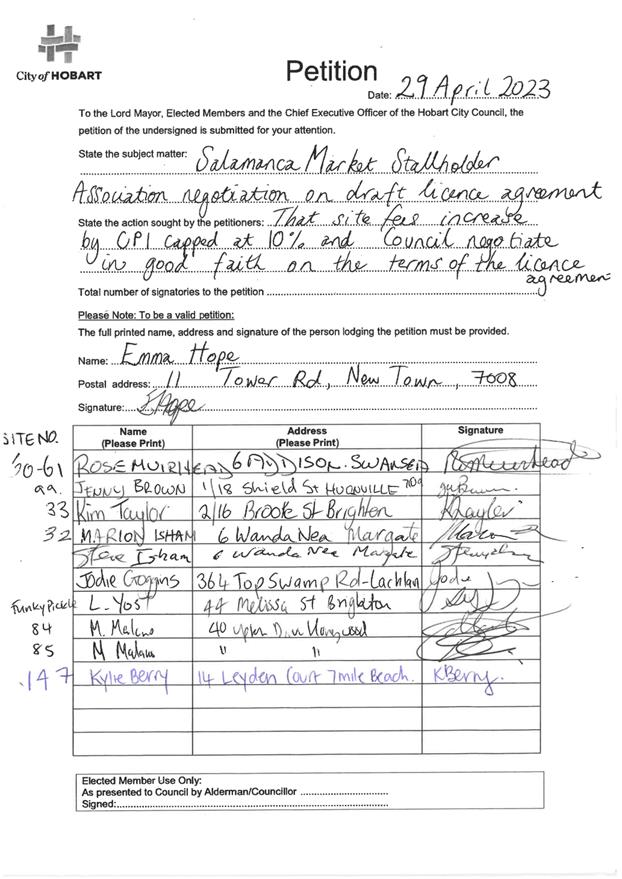 City of HOBART
Petition
Date: 29 April 2023
To the Lord Mayor, Elected Members and the Chief Executive Officer of the Hobart City Council, the
petition of the undersigned is submitted for your attention.
State the subject matter: Salamanca Market Stallholder
Association negotiation on draft licence agreement
State the action sought by the petitioners: That site fees increase
by CPI capped at 10% and Council negotiate
in good faith on the terms of the licence
agreement
Total number of signatories to the petition
Please Note: To be a valid petition:
The full printed name, address and signature of the person lodging the petition must be provided.
Name: Emma Hope
Postal address: 11 Tower Rd, New Town, 7008
Signature: EHope
SITE NO. Name Address Signature
(Please Print) (Please Print)
60-61 ROSE MUIRHEAD 6 ADDISON. SWANSEA RoMuirhead
99. JENNY BROWN 1/18 Shield St HUONVILLE 7109
33 Kim Taylor 2/16 Brook St Brighton KTaylor
32 MARION ISHAM 6 Wanda Nea Margate
Steve Isham 6 Wanda Nea Margate
Jodie Goggins 364 Top Swamp Rd-Lachlan Jodie
Funky Pickle L. Yost 44 Melissa St Brighton
84 M. 40
85 M " "
147 Kylie Berry 14 Leyden Court 7mile Beach. KBerry.
Elected Member Use Only:
As presented to Council by Alderman/Councillor
Signed: